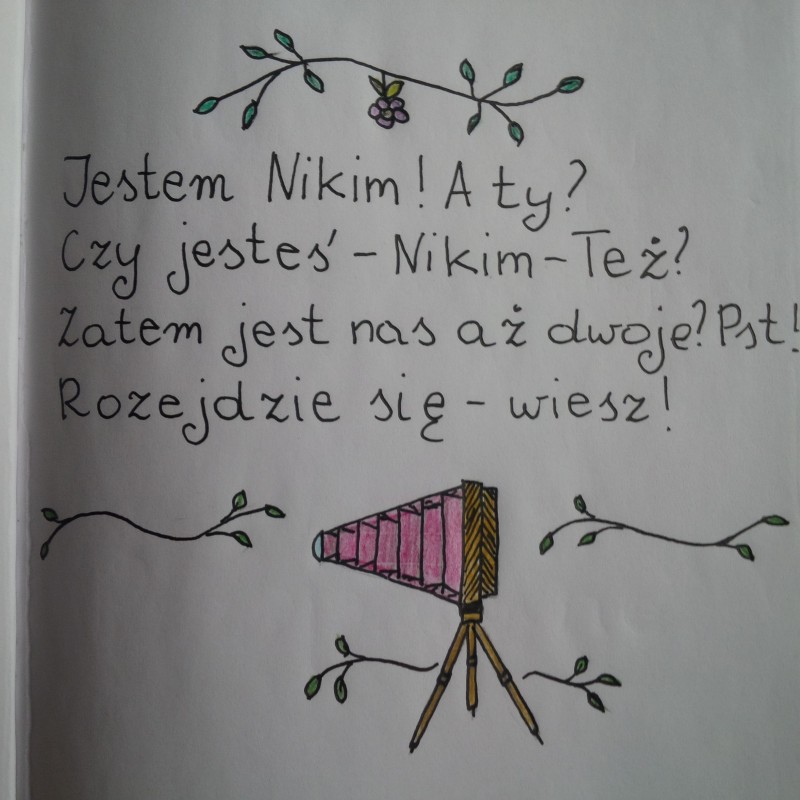 Jestem Nikim! A ty?
Czy jesteś - Nikim - Też?
Zatem jest nas aż dwoje? Pst!
Rozejdzie się - wiesz!